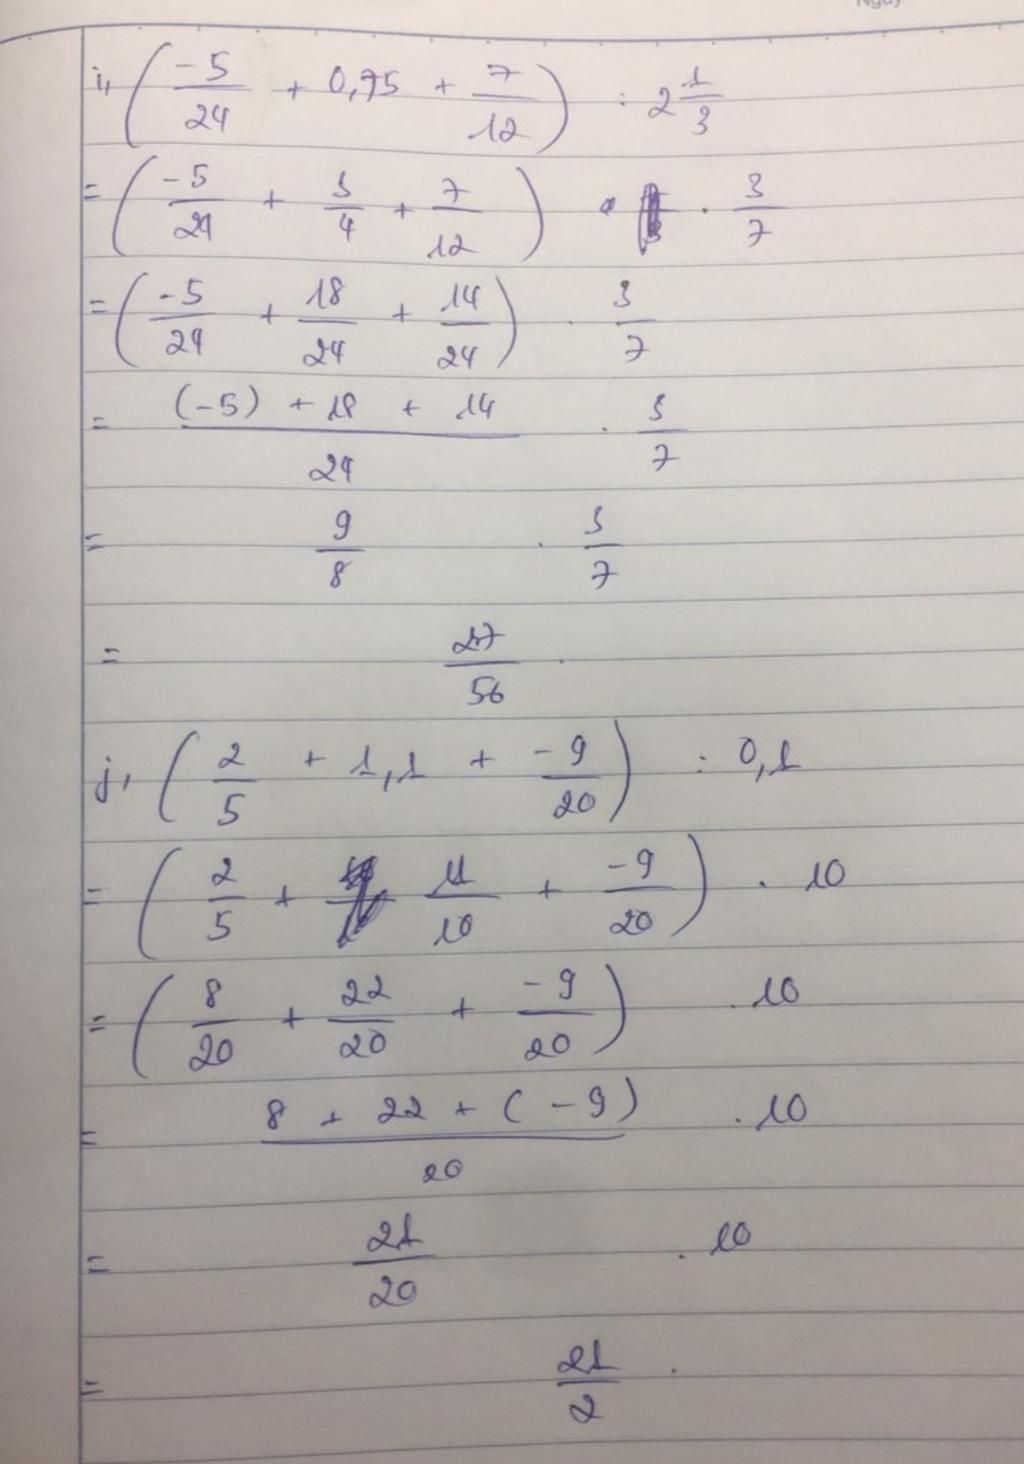 Ngày
i, (-5/24 + 0,75 + 7/12) : 2 1/3
= (-5/24 + 3/4 + 7/12) . 3/7
= (-5/24 + 18/24 + 14/24) . 3/7
= ((-5) + 18 + 14)/24 . 3/7
= 9/8 . 3/7
= 27/56 .
j, (2/5 + 1,1 + -9/20) : 0,1
= (2/5 + 11/10 + -9/20) . 10
= (8/20 + 22/20 + -9/20) . 10
= (8 + 22 + (-9))/20 . 10
= 21/20 . 10
= 21/2 .